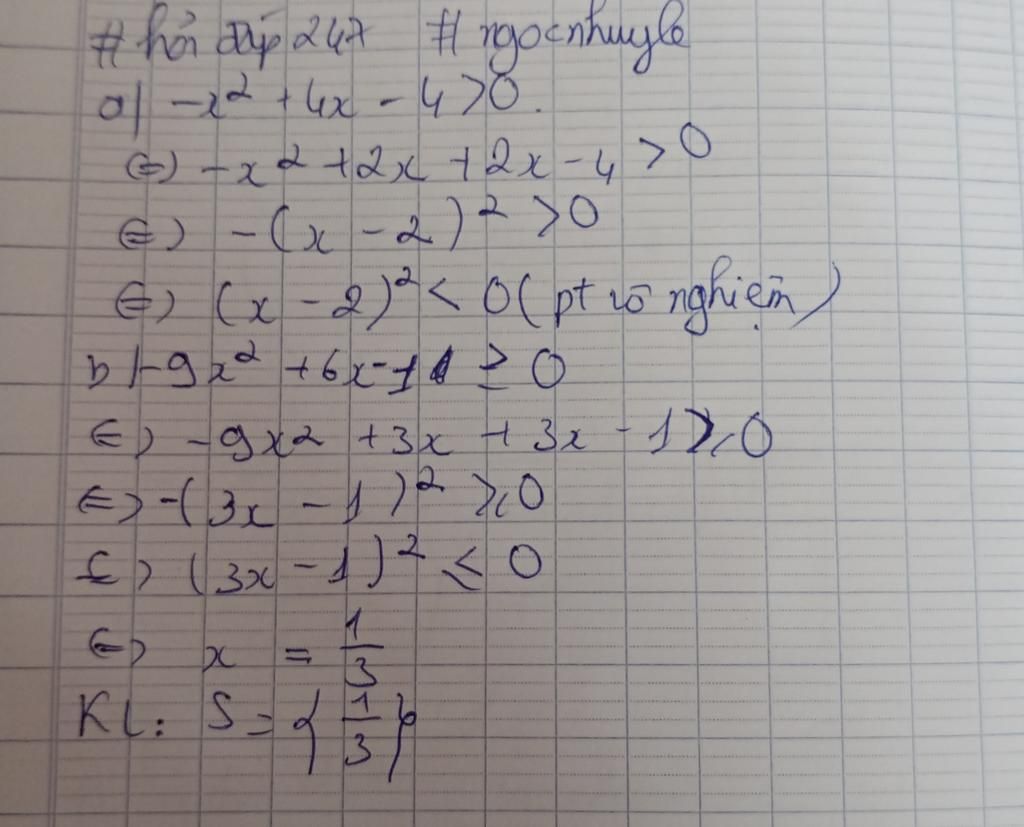 # hỏi đáp 247 # ngocnhuyle
a) -x² + 4x - 4 > 0.
⇔) -x² + 2x + 2x - 4 > 0
⇔) -(x - 2)² > 0
⇔) (x - 2)² < 0 (pt vô nghiệm)
b) -9x² + 6x - 1 ≥ 0
⇔) -9x² + 3x + 3x - 1 ≥ 0
⇔) -(3x - 1)² ≥ 0
⇔) (3x - 1)² ≤ 0
⇔) x = 1/3
KL: S = {1/3}